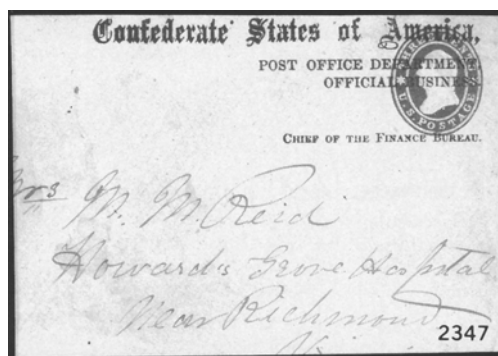 Confederate States of America,
POST OFFICE DEPARTMENT,
OFFICIAL BUSINESS.
U.S. POSTAGE
CHIEF OF THE FINANCE BUREAU.
Mrs M. M. Reid
Howard's Grove Hospital
Near Richmond
2347